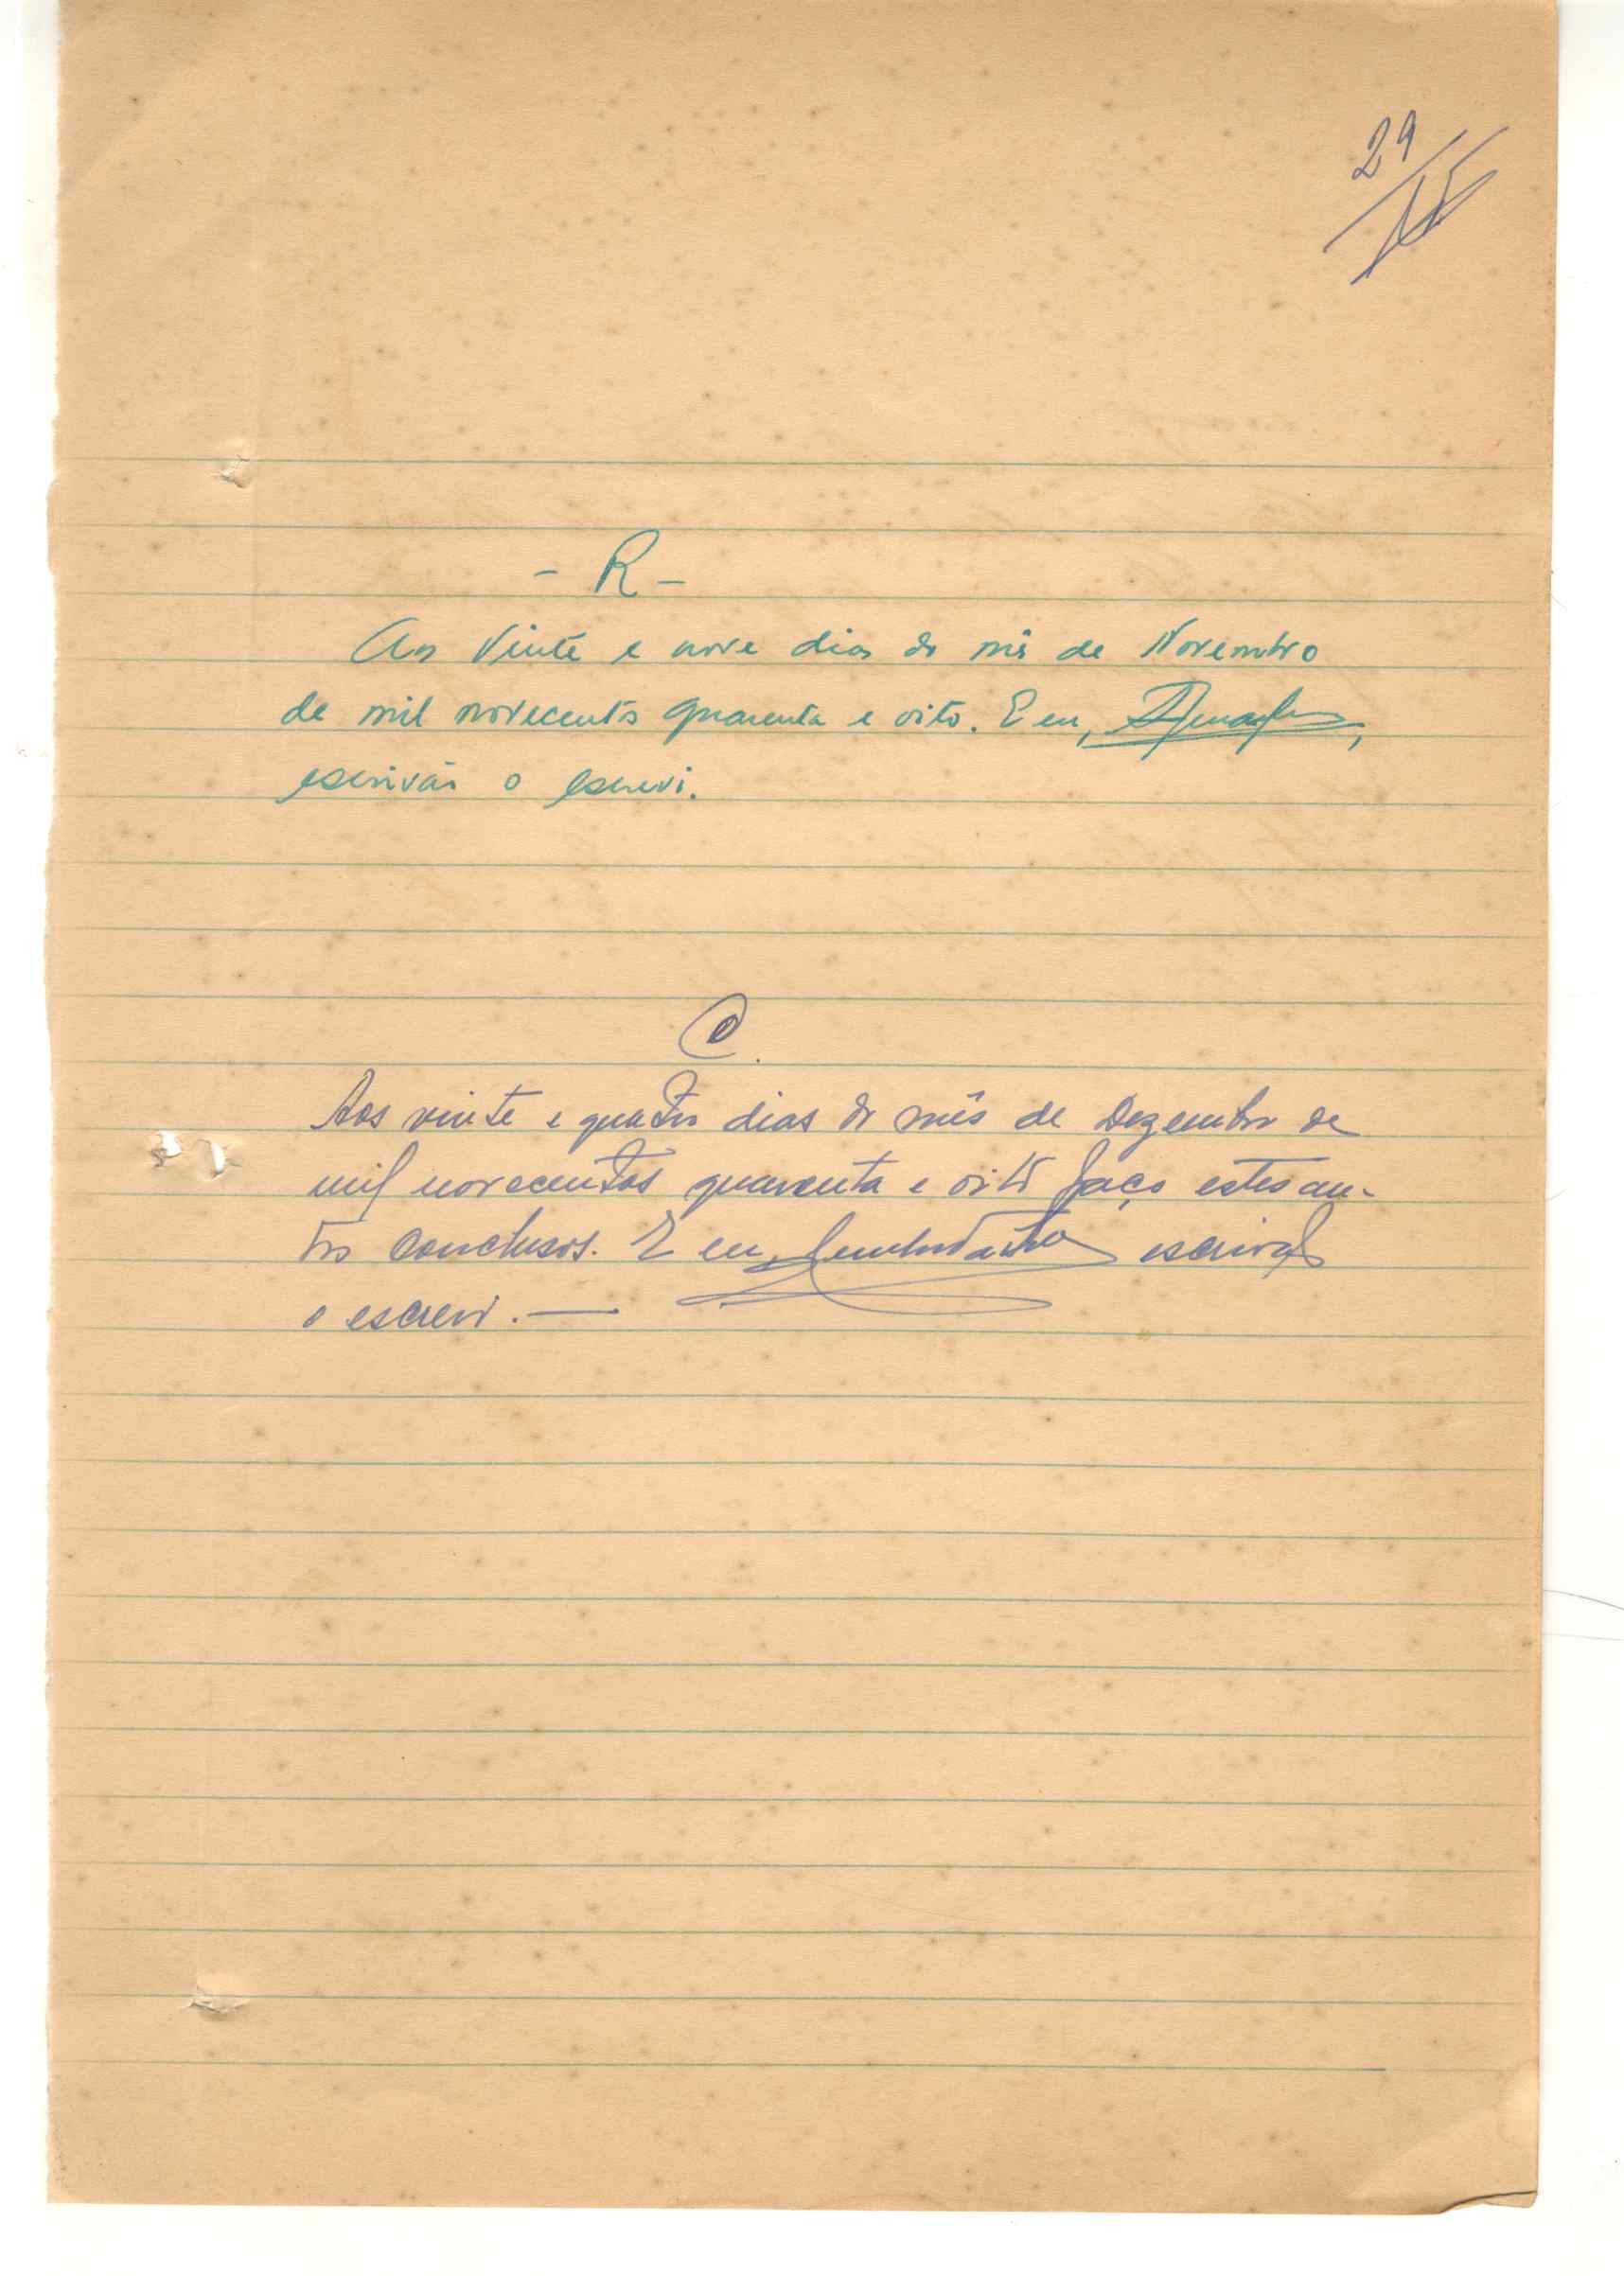 29
- R -
Aos Vinte e nove dias do mês de Novembro
de mil novecentos quarenta e oito. E eu,
escrivão o escrevi.
C.
Aos vinte e quatro dias do mês de Dezembro de
mil novecentos quarenta e oito faço estes au-
tos conclusos. E eu, escrivão
o escrevi. —